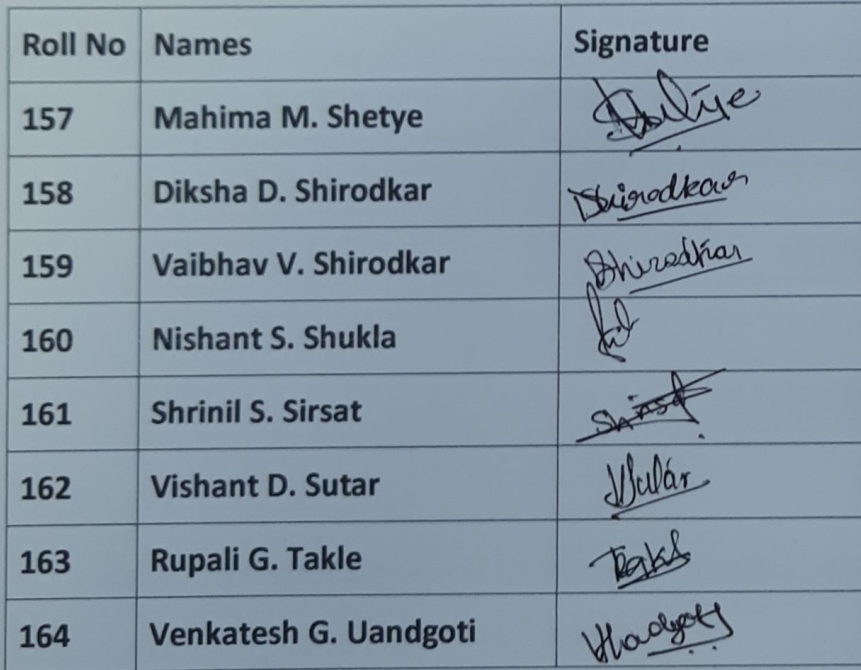 Roll No Names Signature
157 Mahima M. Shetye
158 Diksha D. Shirodkar Shirodkar
159 Vaibhav V. Shirodkar Shirodkar
160 Nishant S. Shukla
161 Shrinil S. Sirsat
162 Vishant D. Sutar
163 Rupali G. Takle
164 Venkatesh G. Uandgoti